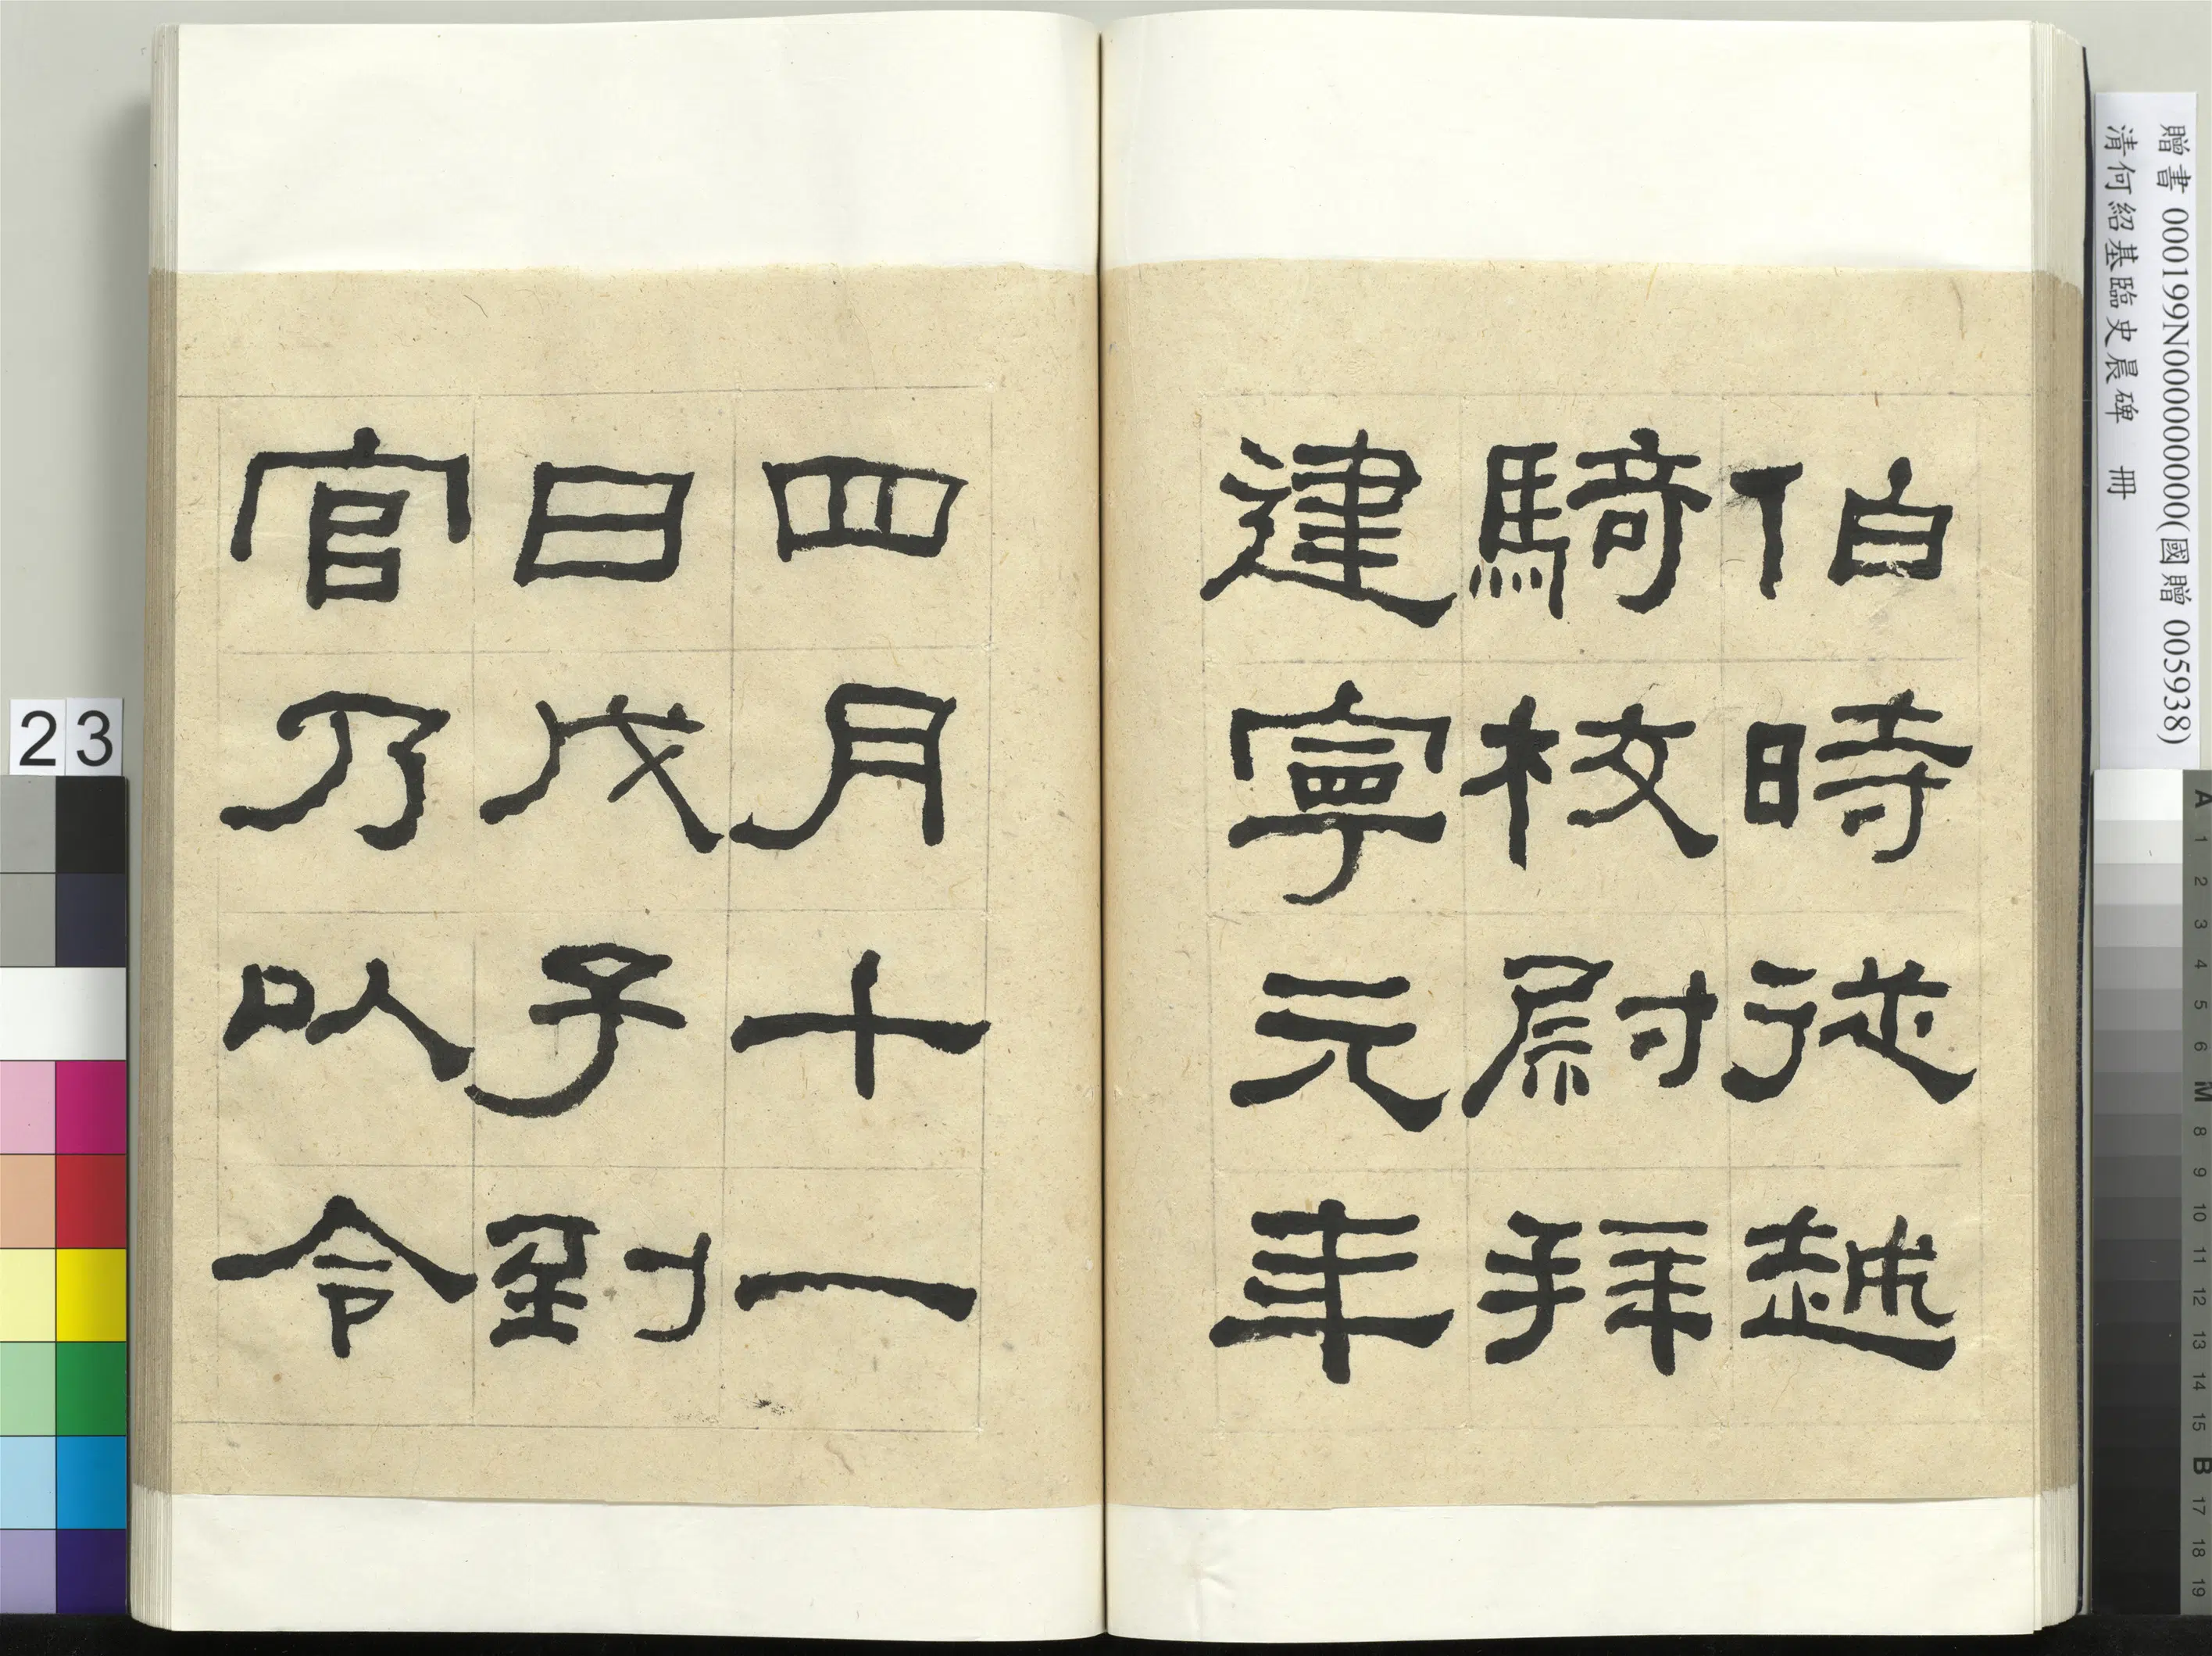 伯時從越
騎校尉拜
建寧元年
四月十一
日戊子到
官乃以令
贈書 000199N000000000(國贈 005938)
清何紹基臨史晨碑 冊
23
A 1 2 3 4 5 6 M 8 9 10 11 12 13 14 15 B 17 18 19